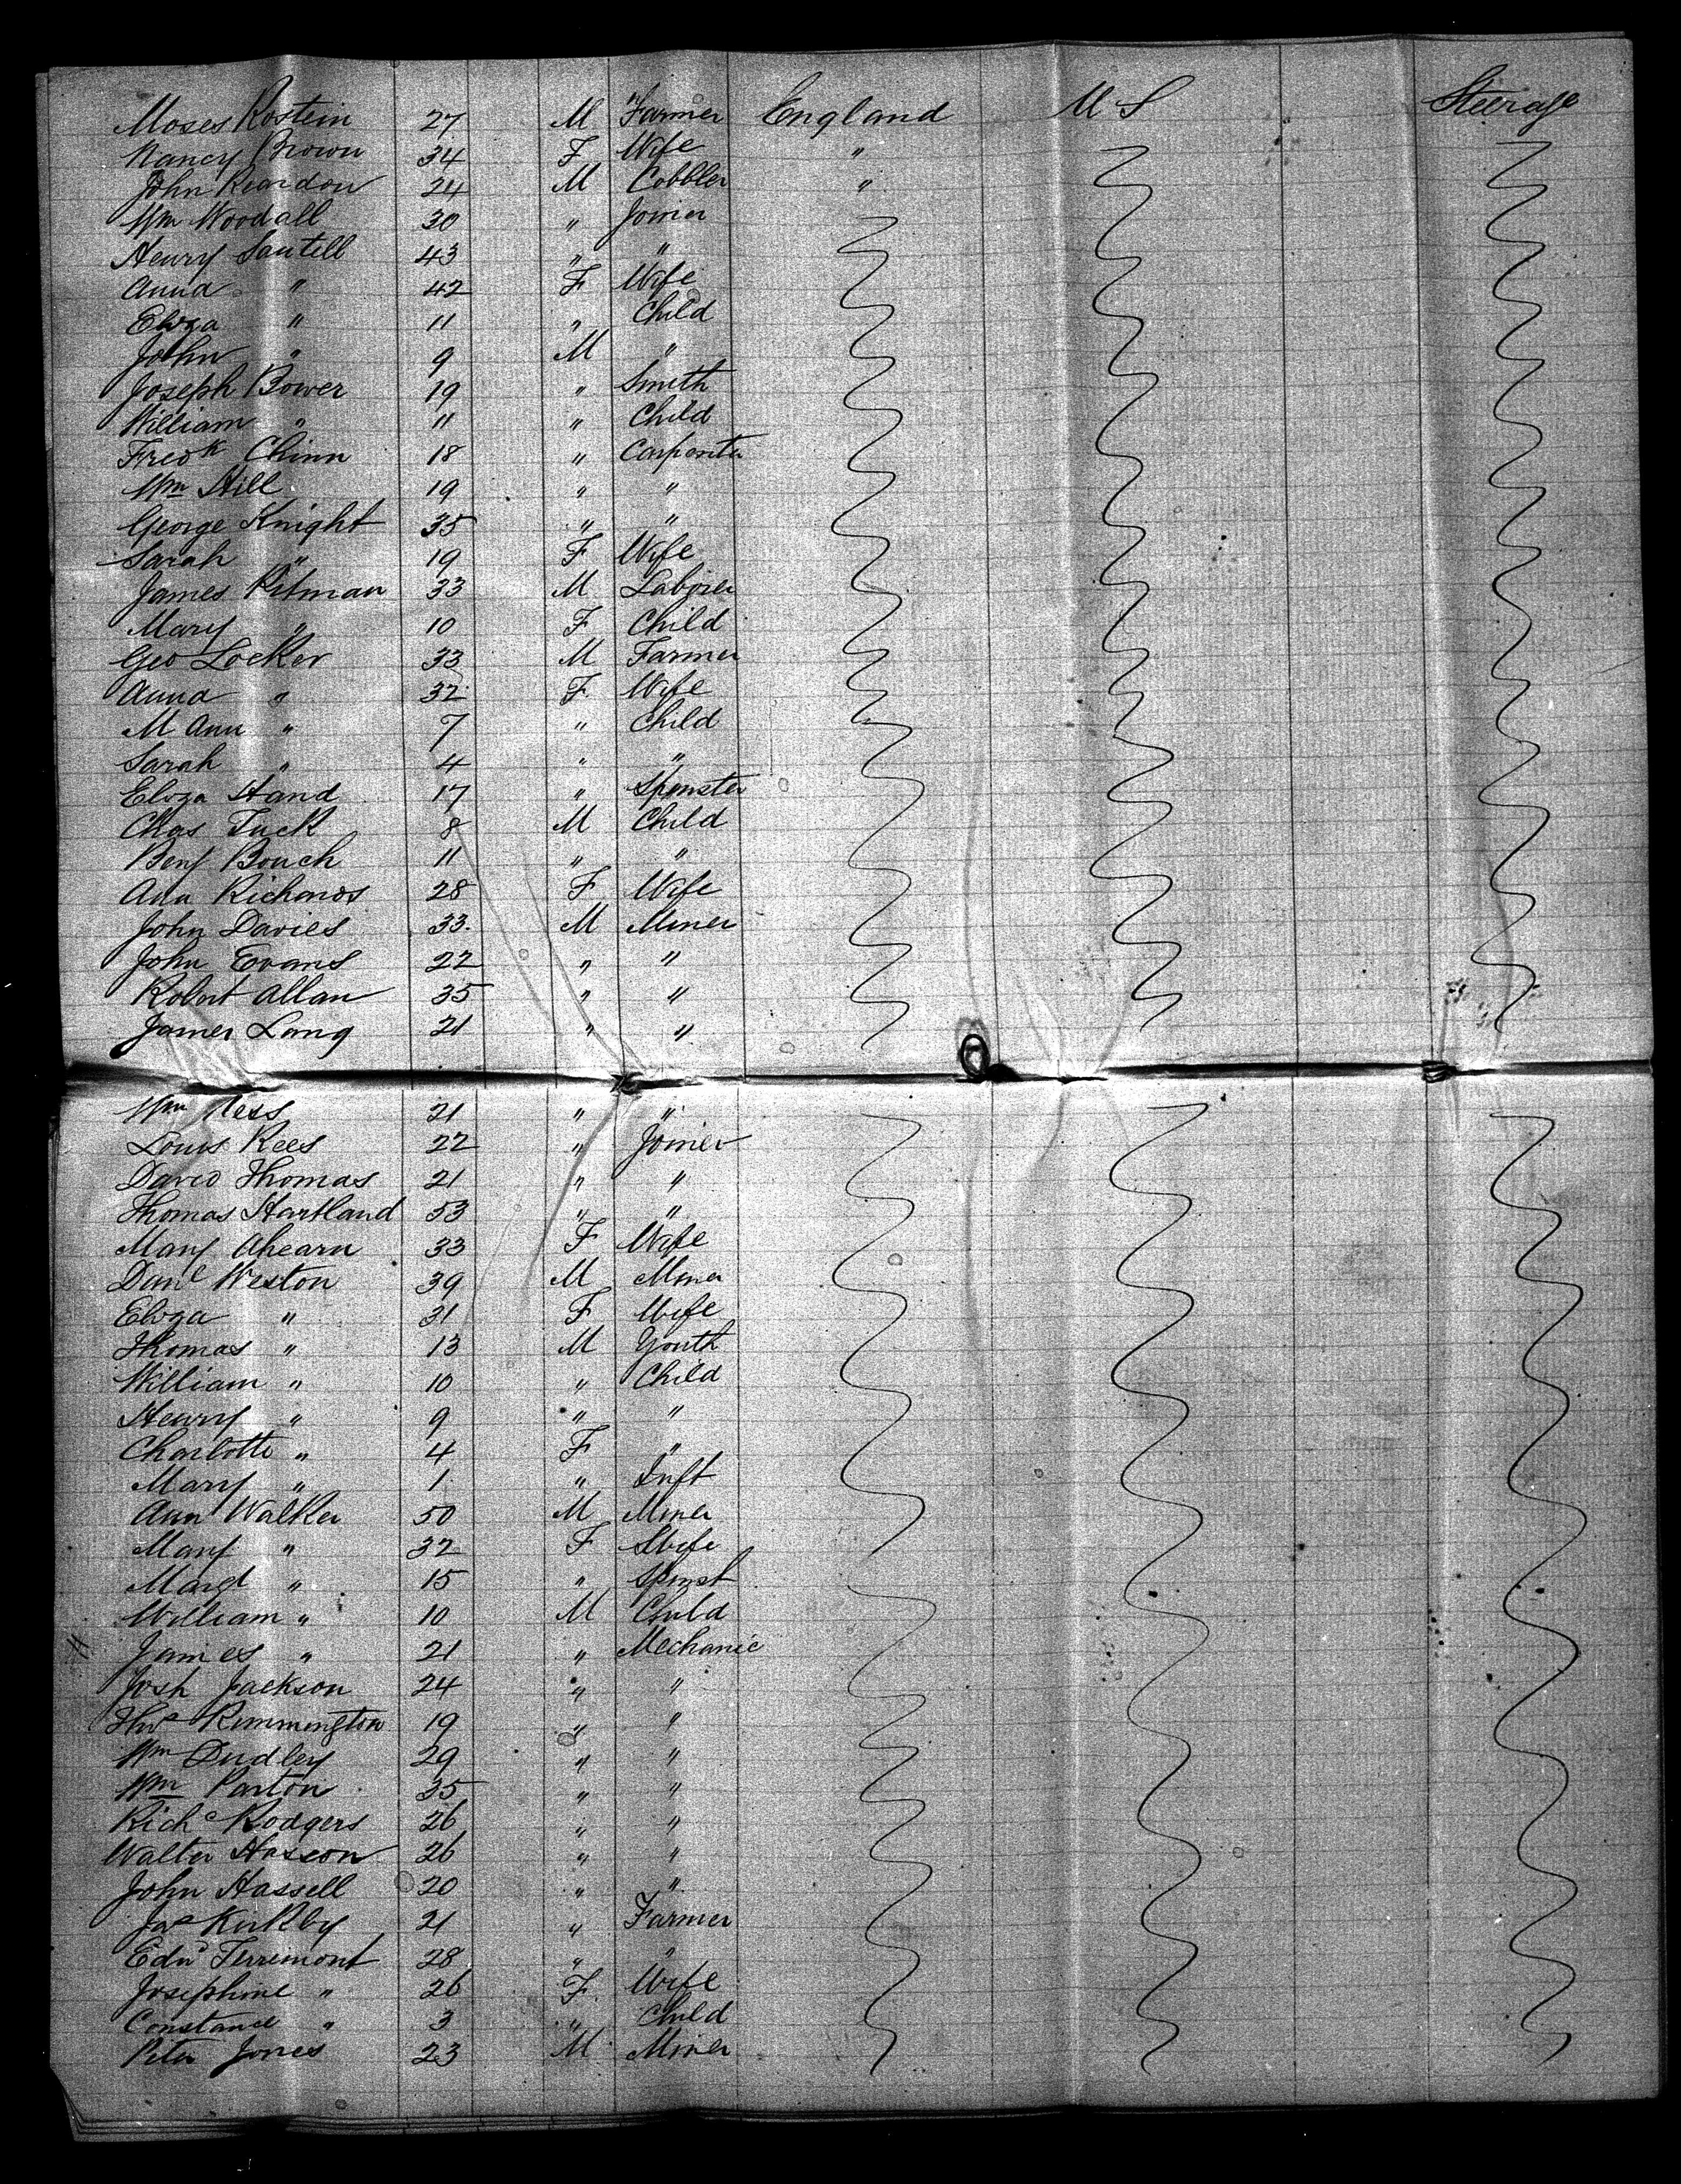 Moses Rostein 27 M Farmer England U S Steerage
Nancy Brown 34 F Wife "
John Reardon 24 M Cobbler "
Wm Woodall 30 " Joiner
Henry Sautell 43 " "
Anna " 42 F Wife
Eliza " 11 " Child
John " 9 M "
Joseph Bower 19 " Smith
William " 11 " Child
Fredk Chinn 18 " Carpenter
Wm Hill 19 " "
George Knight 35 " "
Sarah " 19 F Wife
James Pitman 33 M Laborer
Mary " 10 F Child
Geo Locker 33 M Farmer
Anna " 32 F Wife
M Ann " 7 " Child
Sarah " 4 " "
Eliza Hand 17 " Spinster
Chas Tuck 8 M Child
Benj Bouch 11 " "
Ann Richards 28 F Wife
John Davies 33 M Miner
John Evans 22 " "
Robert Allan 35 " "
James Lang 21 " "
Wm 21 " "
Louis Rees 22 " Joiner
David Thomas 21 " "
Thomas Hartland 53 " "
Mary Ahearn 33 F Wife
Danl Weston 39 M Miner
Eliza " 31 F Wife
Thomas " 13 M Youth
William " 10 " Child
Henry " 9 " "
Charlotte " 4 F "
Mary " 1 " Inft
Ann Walker 50 M Miner
Mary " 32 F Wife
Margt " 15 " Spinst
William " 10 M Child
James " 21 " Mechanic
Josh Jackson 24 " "
Thos Rimmington 19 " "
Wm Dudley 29 " "
Wm Parton 35 " "
Richd Rodgers 26 " "
Walter 26 " "
John Hassell 20 " "
Jas Kirkby 21 " Farmer
Edwd Terremont 28 " "
Josephine " 26 F Wife
Constance " 3 " Child
Peter Jones 23 M Miner